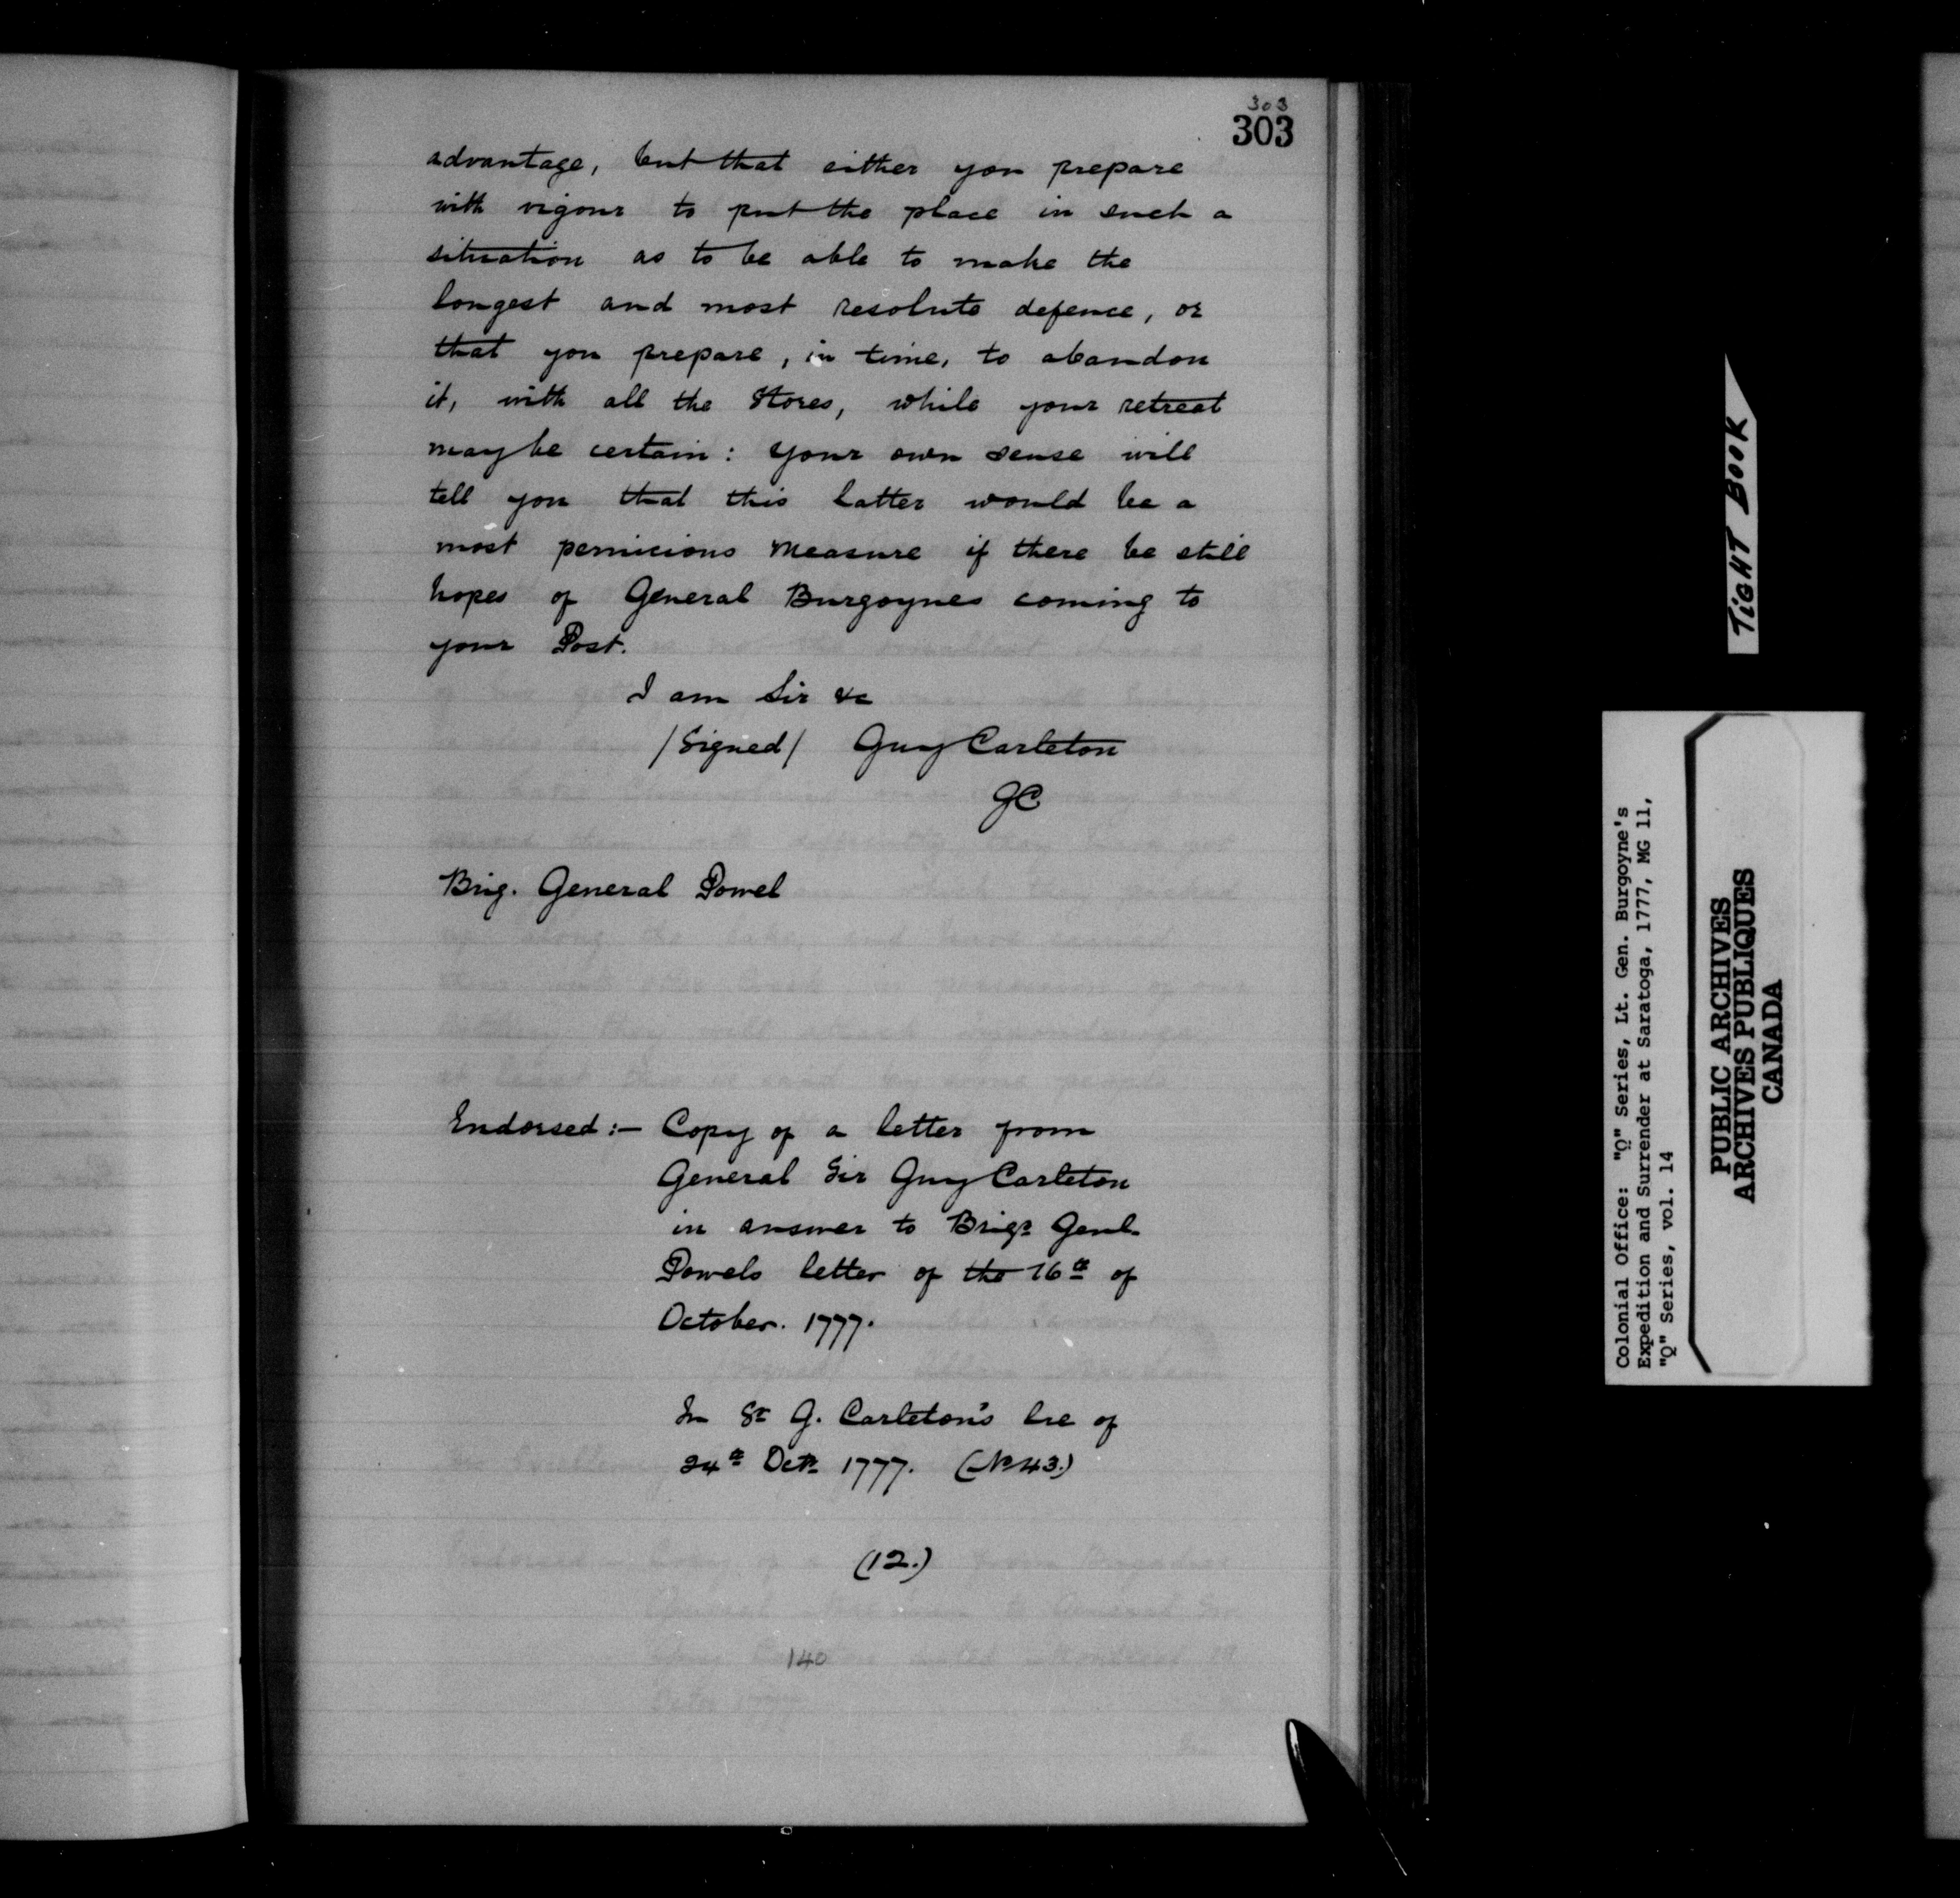 303
303
advantage, but that either you prepare
with vigour to put the place in such a
situation as to be able to make the
longest and most resolute defence, or
that you prepare, in time, to abandon
it, with all the Stores, while your retreat
may be certain: your own sense will
tell you that this latter would be a
most pernicious measure if there be still
hopes of General Burgoynes coming to
your Post.
I am Sir &c
/Signed/ Guy Carleton
GC
Brig. General Powel
Endorsed:— Copy of a letter from
General Sir Guy Carleton
in answer to Brigr Genl.
Powels letter of the 16th of
October. 1777.
In Sr G. Carleton's lre of
24th Octr 1777. (No 43.)
(12.)
140
TIGHT BOOK
Colonial Office: "Q" Series, Lt. Gen. Burgoyne's
Expedition and Surrender at Saratoga, 1777, MG 11,
"Q" Series, vol. 14
PUBLIC ARCHIVES
ARCHIVES PUBLIQUES
CANADA